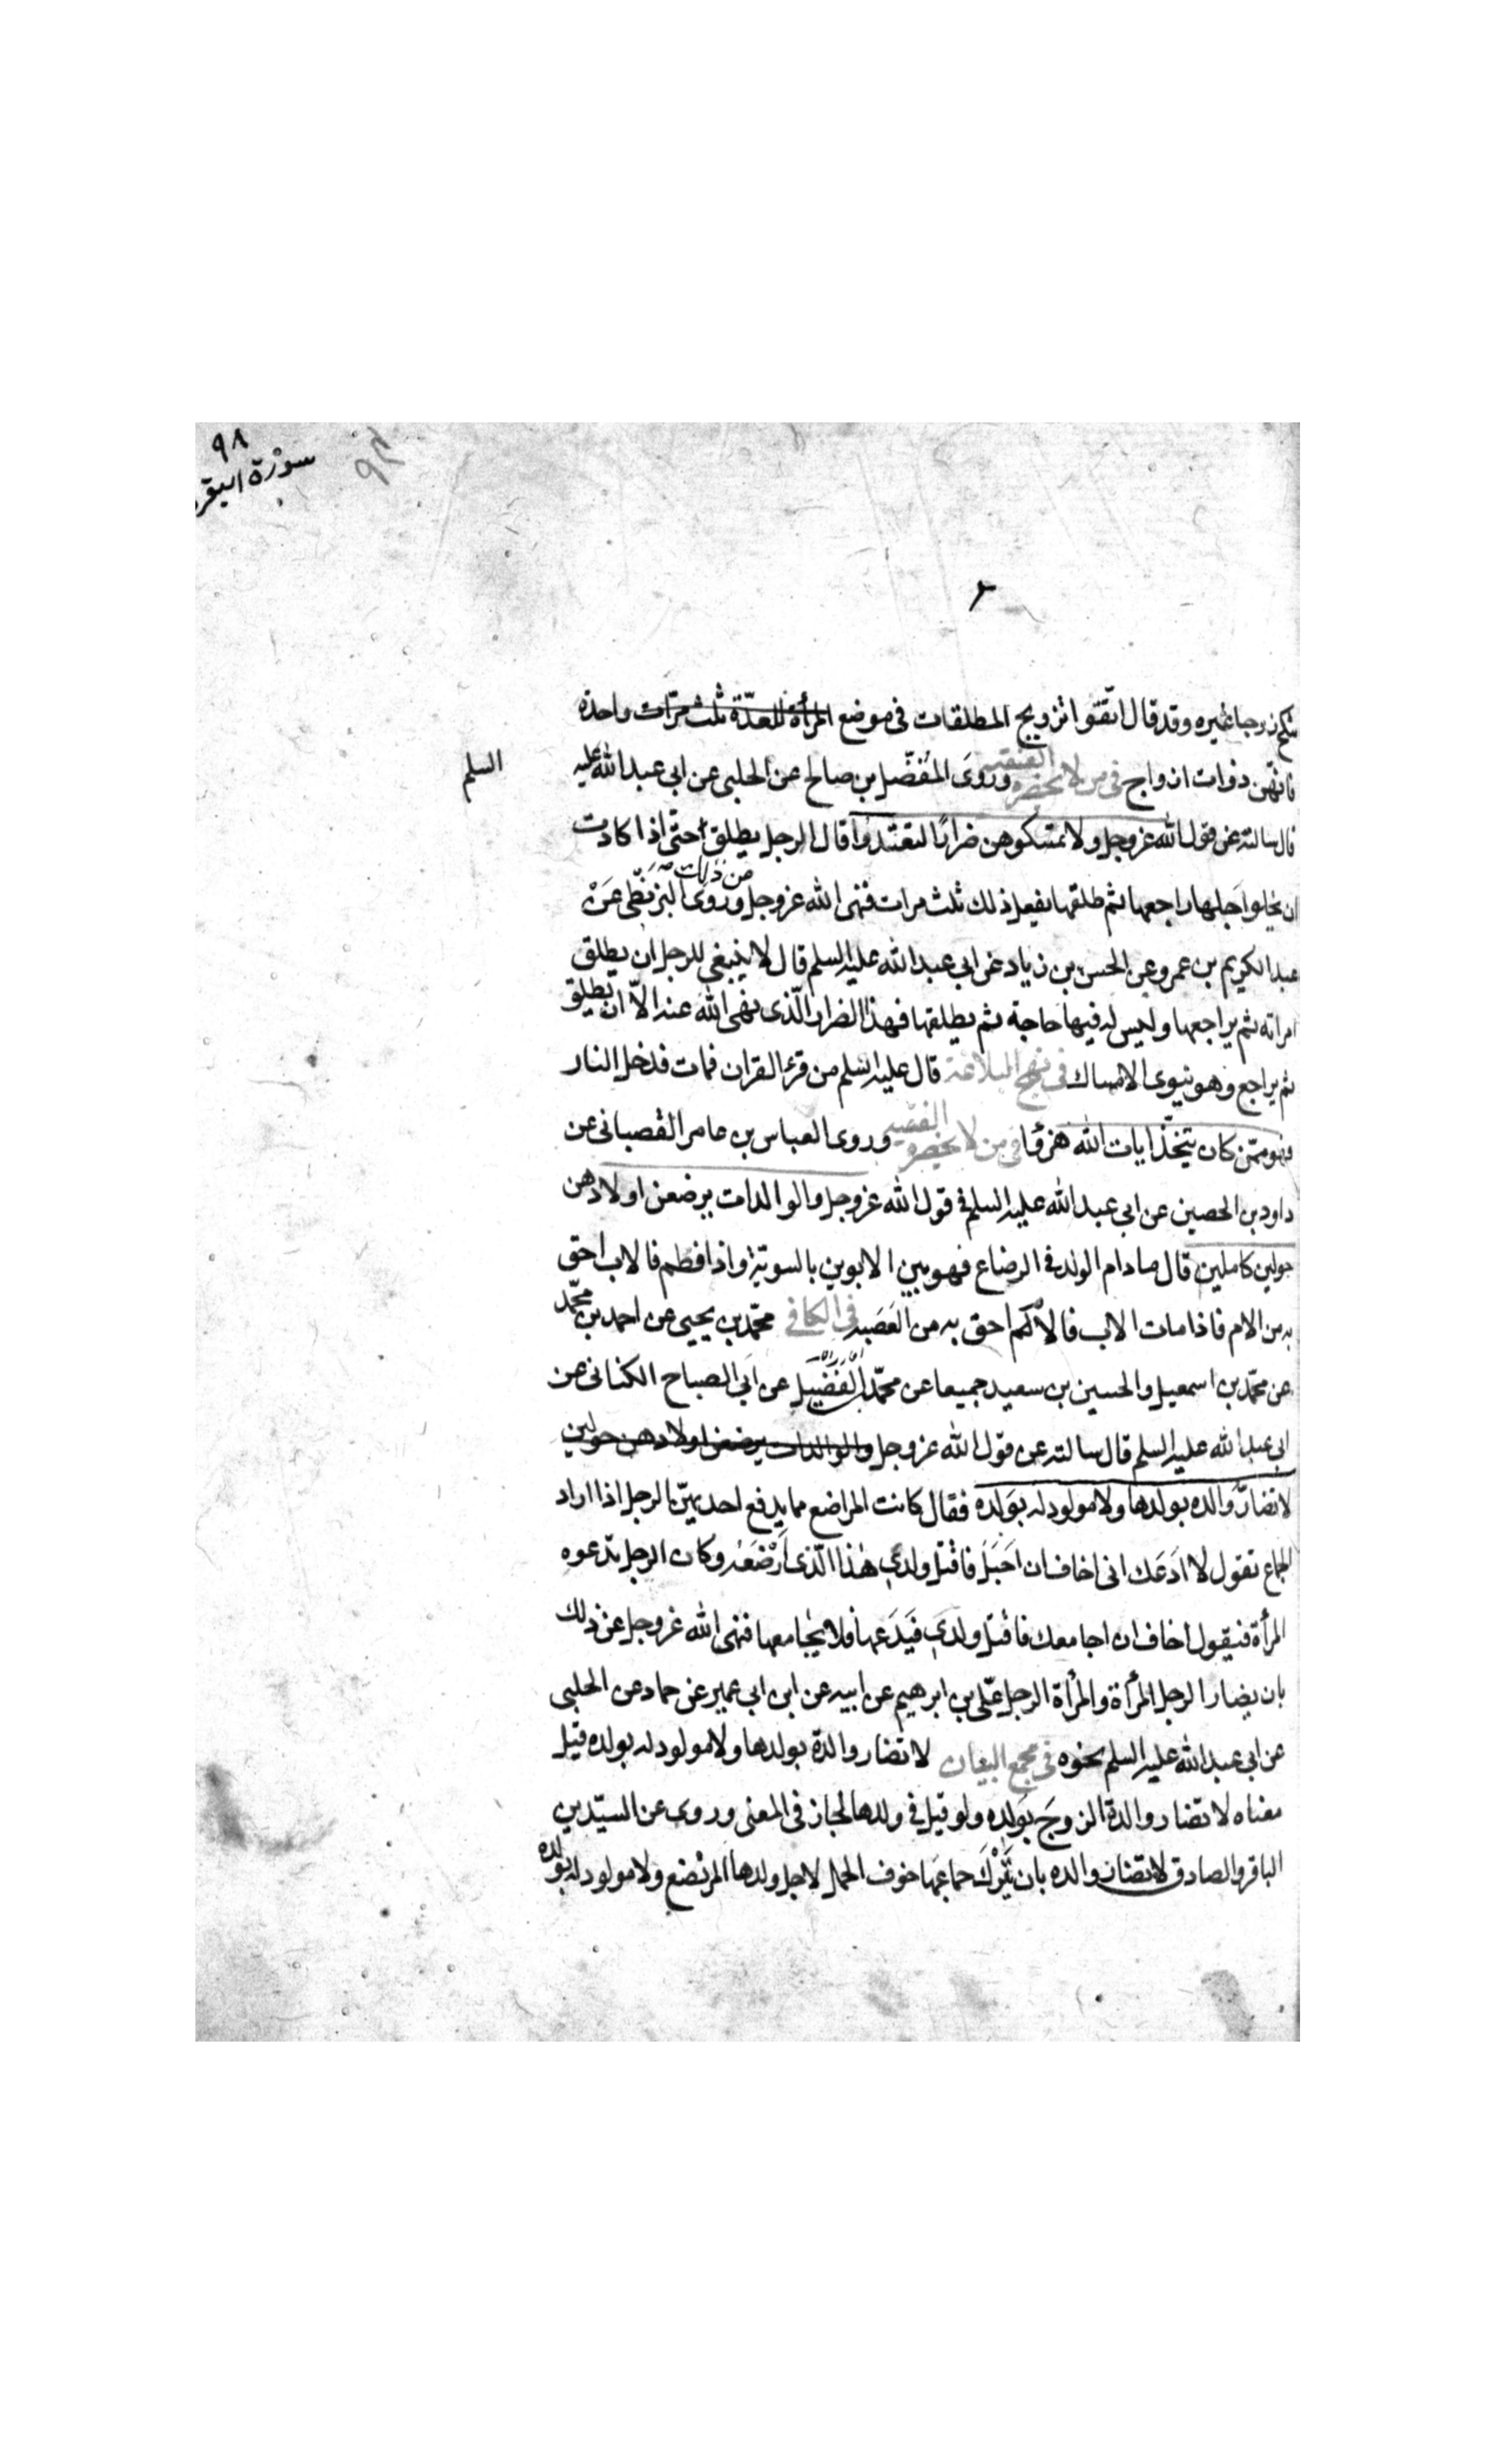 ٩٨
سورة البقره
٩٨
تنكح زوجا غيره وقد قال اتقوا تزويج المطلقات فى موضع المرأة للعدّة ثلث مرّات واحدة
فانهّن ذوات ازواج فى من لا يحضره الفقيه وروى المفضّل بن صالح عن الحلبى عن ابى عبد الله عليه السلم
قال سالته عن قول الله عز وجل ولا تمسكوهن ضرارًا لتعتدوا قال الرجل يطلق حتّى اذا كادت
ان يخلوا جلها راجعها ثم طلقها يفعل ذلك ثلث مرات فنهى الله عز وجل عن ذلك وروى البزنطّى عَنْ
عبد الكريم بن عمرو عن الحسن بن زياد عن ابى عبد الله عليه السلم قال لا ينبغى للرجل ان يطلق
امراته ثم يراجعها وليس له فيها حاجة ثم يطلقها فهذا الضرار الّذى نهى الله عنه الاّ ان يطلق
ثم يراجع وهو ينوى الامساك فى نهج البلاغة قال عليه السلم من قرء القران فمات فدخل النار
فهو ممّن كان يتخّذ ايات الله هزؤا فى من لا يحضره الفقيه وروى العباس بن عامر القصبانى عن
داود بن الحصين عن ابى عبد الله عليه السلم فى قول الله عز وجل والوالدات يرضعن اولادهن
حولين كاملين قال مادام الولد فى الرضاع فهو بين الابوين بالسوية واذا فطم فالاب احق
به من الام فاذا مات الاب فالامّ احق به من العَصَبه فى الكافى محمّد بن يحيى عن احمد بن محمّد
عن محمّد بن اسمعيل والحسين بن سعيد جميعا عن محمّد بن الفُضَيْل عن ابَى الصباح الكنانى عن
ابى عبد الله عليه السلم قال سالته عن قول الله عز وجل والوالدات يرضعن اولادهن حولين
لا تضارّ والده بولدها ولا مولود له بوَلده فقال كانت المراضع مما يدفع احديهنّ الرجل اذا اراد
الجماع تقول لا ادَعَك انى اخاف ان احَبَلَ فاقتل ولدى هذا الّذى اُرْضعَهُ وكان الرجل تدعوه
المرأة فيقول اخاف ان اجامعك فاقتل ولدى فَيَدَعَها فلا يُجامعها فنهى الله عز وجل عن ذلك
بان يضار الرجل المرأة والمرأة الرجل علّى بن ابرهيم عن ابيه عن ابن ابى عمير عن حماد عن الحلبى
عن ابى عبد الله عليه السلم نحوه فى مجمع البيان لا تضار والدة بولدها ولا مولود له بولده قيل
معناه لا تضار والدة الزوجَ بوَلده ولو قيل فى ولدها لجاز فى المعنى وروى عن السيّدين
الباقر والصادق لا تضار والده بان يَتْرُكَ جماعَها خوف الحمل لاجل ولدها المرتضع ولا مولود له بولده